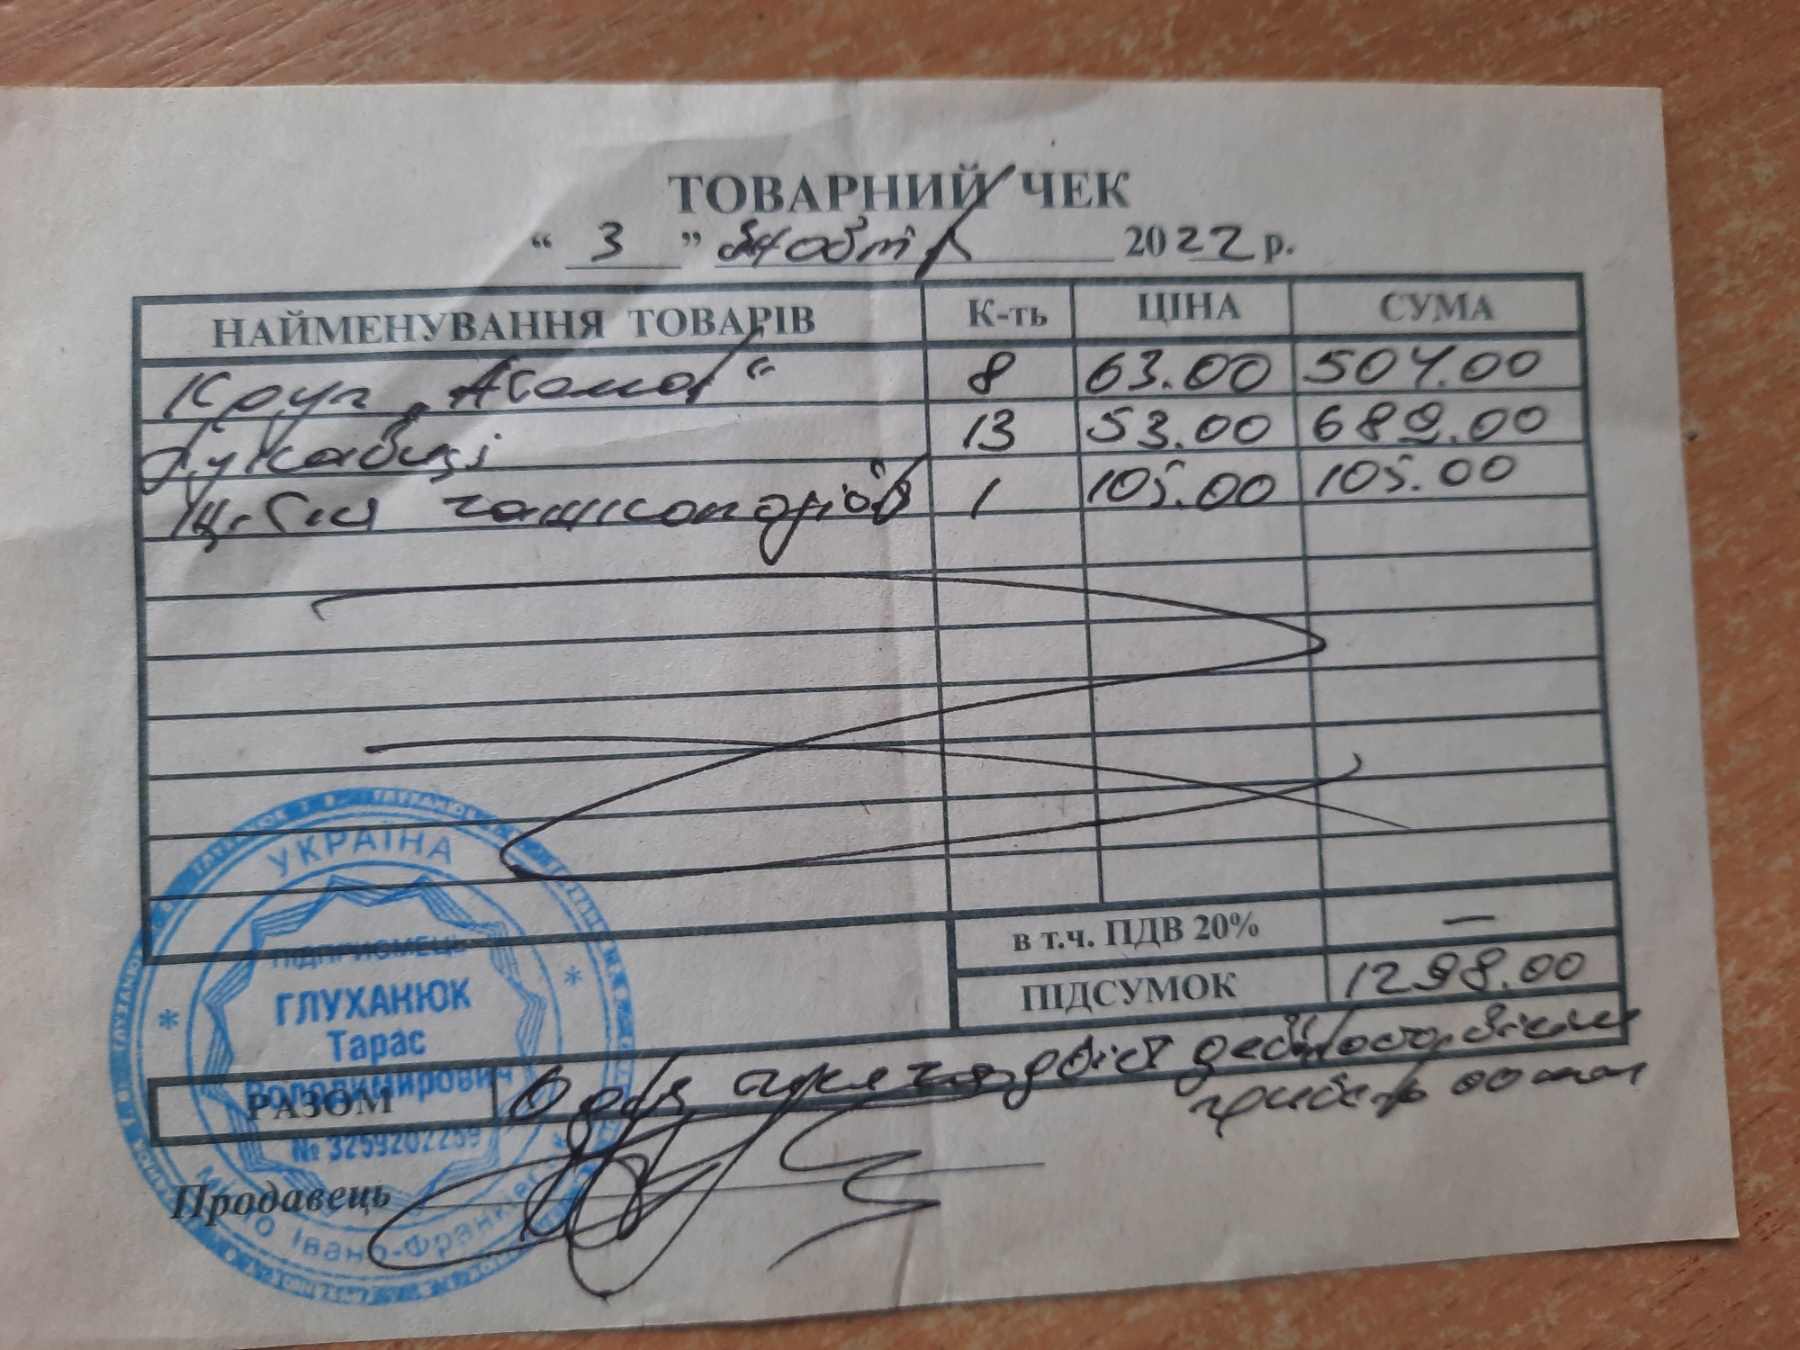 ТОВАРНИЙ ЧЕК
“ 3 ” жовт 2022 р.
НАЙМЕНУВАННЯ ТОВАРІВ К-ть ЦІНА СУМА
Круг 8 63.00 504.00
Рукавиці 13 53.00 689.00
1 105.00 105.00
в т.ч. ПДВ 20% —
ПІДСУМОК 1298.00
РАЗОМ Одна тисяча двісті дев'яносто вісім
гривень 00 коп
Продавець
УКРАЇНА
ПІДПРИЄМЕЦЬ
ГЛУХАНЮК
Тарас
Володимирович
№ 3259202259
місто Івано-Франківськ